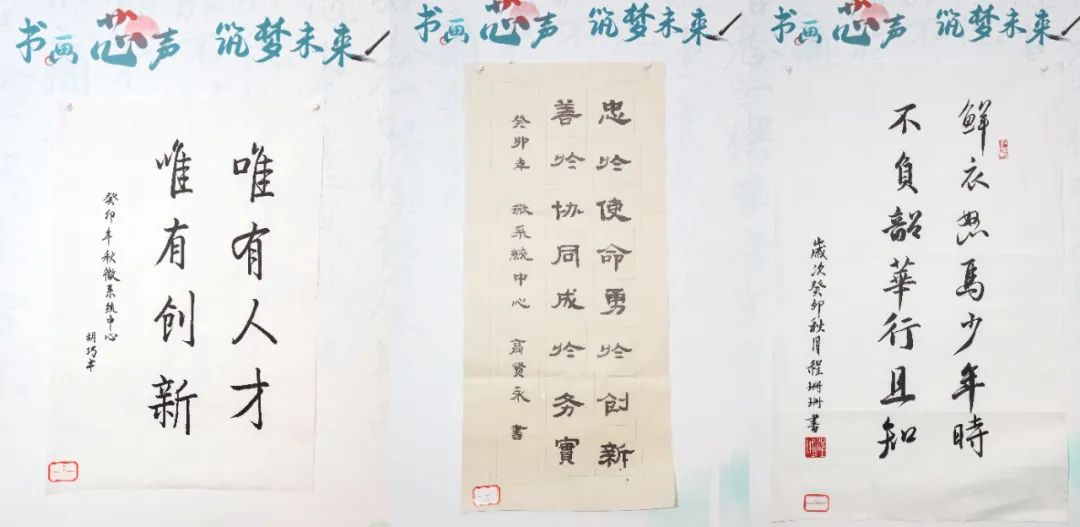 书画芯声 筑梦未来
唯有人才
唯有创新
癸卯年秋微系统中心
胡巧书
书画芯声 筑梦未来
忠於使命勇於创新
善於协同成於务實
癸卯年 微系統中心 高贤永 書
书画芯声 筑梦未来
鲜衣怒馬少年時
不負韶華行且知
歲次癸卯秋月程珊珊書